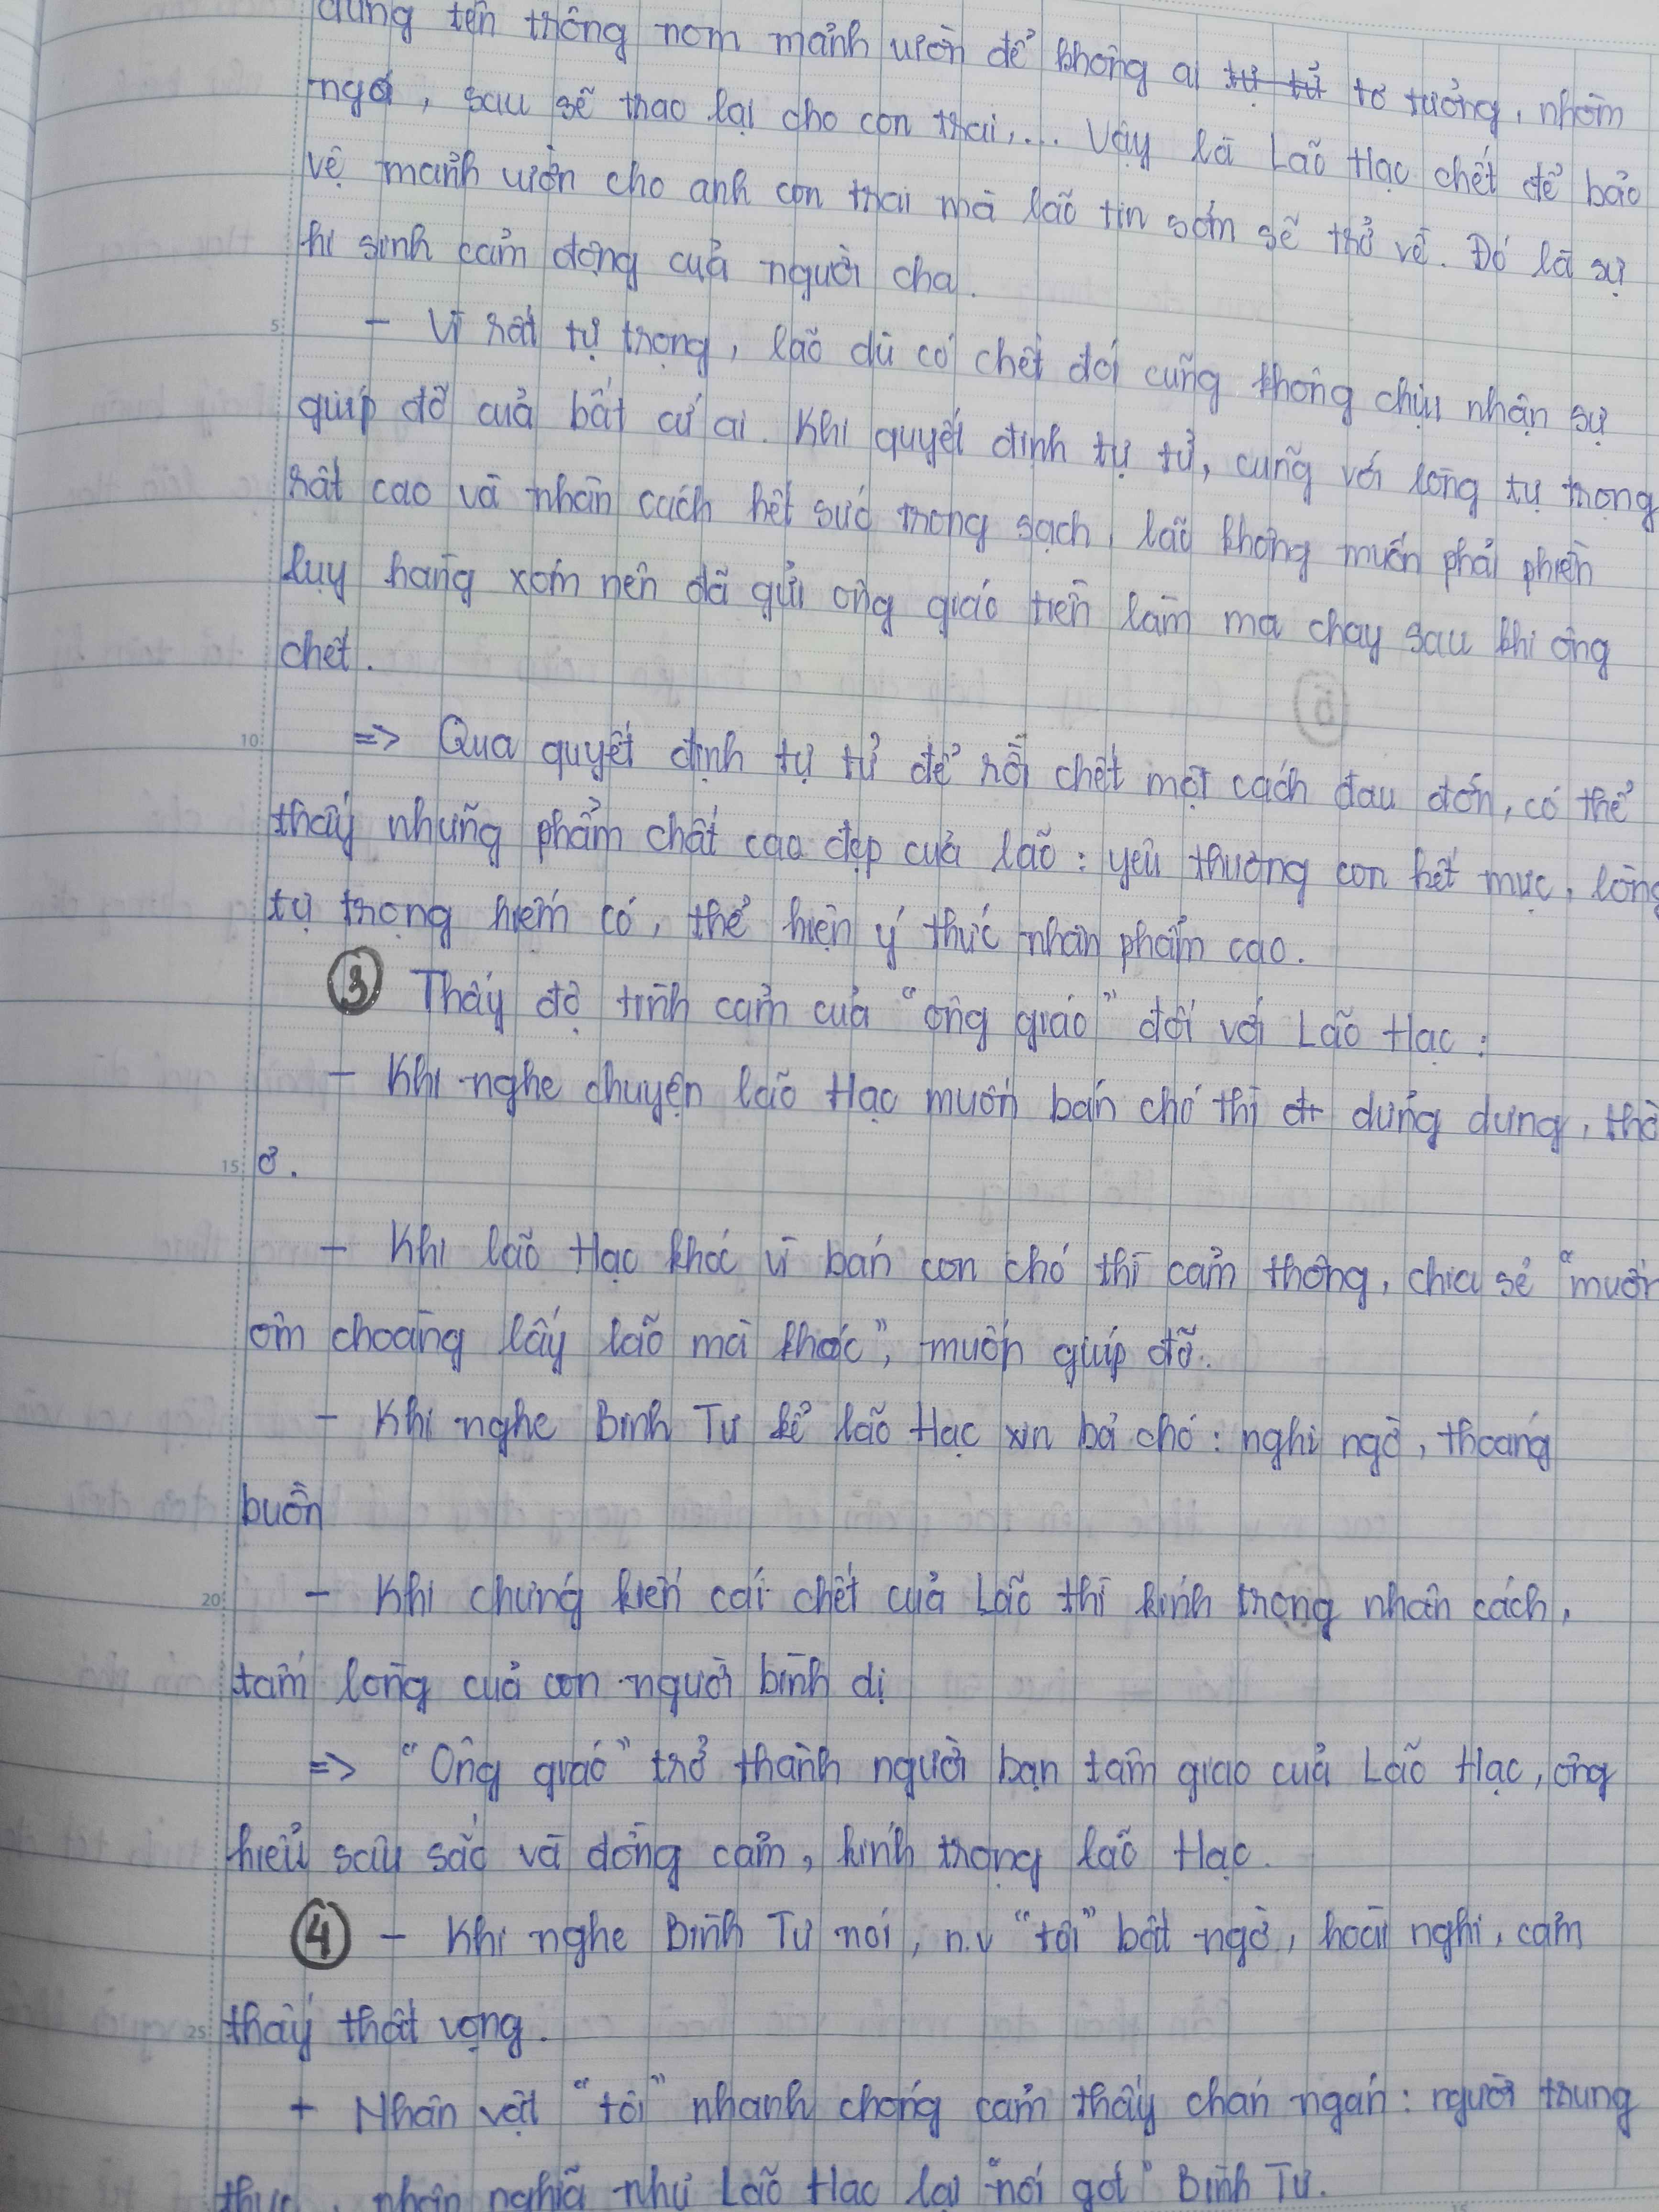 dùng tên trông nom mảnh vườn để không ai tự tử tơ tưởng, nhòm
ngó, sau sẽ trao lại cho con trai,... Vậy là Lão Hạc chết để bảo
vệ mảnh vườn cho anh con trai mà lão tin sớm sẽ trở về. Đó là sự
hi sinh cảm động của người cha.
- Vì rất tự trọng, lão dù có chết đói cũng không chịu nhận sự
giúp đỡ của bất cứ ai. Khi quyết định tự tử, cũng với lòng tự trọng
rất cao và nhân cách hết sức trong sạch, lão không muốn phải phiền
lụy hàng xóm nên đã gửi ông giáo tiền làm ma chay sau khi ông
chết.
=> Qua quyết định tự tử để rồi chết một cách đau đớn, có thể
thấy những phẩm chất cao đẹp của lão: yêu thương con hết mực, lòng
tự trọng hiếm có, thể hiện ý thức nhân phẩm cao.
③ Thấy độ tình cảm của "ông giáo" đối với Lão Hạc:
- Khi nghe chuyện lão Hạc muốn bán chó thì dửng dưng, thờ
ơ.
- Khi lão Hạc khóc vì bán con chó thì cảm thông, chia sẻ "muốn
ôm choàng lấy lão mà khóc", muốn giúp đỡ.
- Khi nghe Binh Tư kể lão Hạc xin bả chó: nghi ngờ, thoáng
buồn
- Khi chứng kiến cái chết của Lão thì kính trọng nhân cách,
tấm lòng của con người bình dị
=> "Ông giáo" trở thành người bạn tâm giao của Lão Hạc, ông
hiểu sâu sắc và đồng cảm, kính trọng lão Hạc.
④ - Khi nghe Binh Tư nói, n.v "tôi" bất ngờ, hoài nghi, cảm
thấy thất vọng.
+ Nhân vật "tôi" nhanh chóng cảm thấy chán ngán: người trung
thực, nhân nghĩa như Lão Hạc lại "nối gót" Binh Tư.
5
10
15
20
25